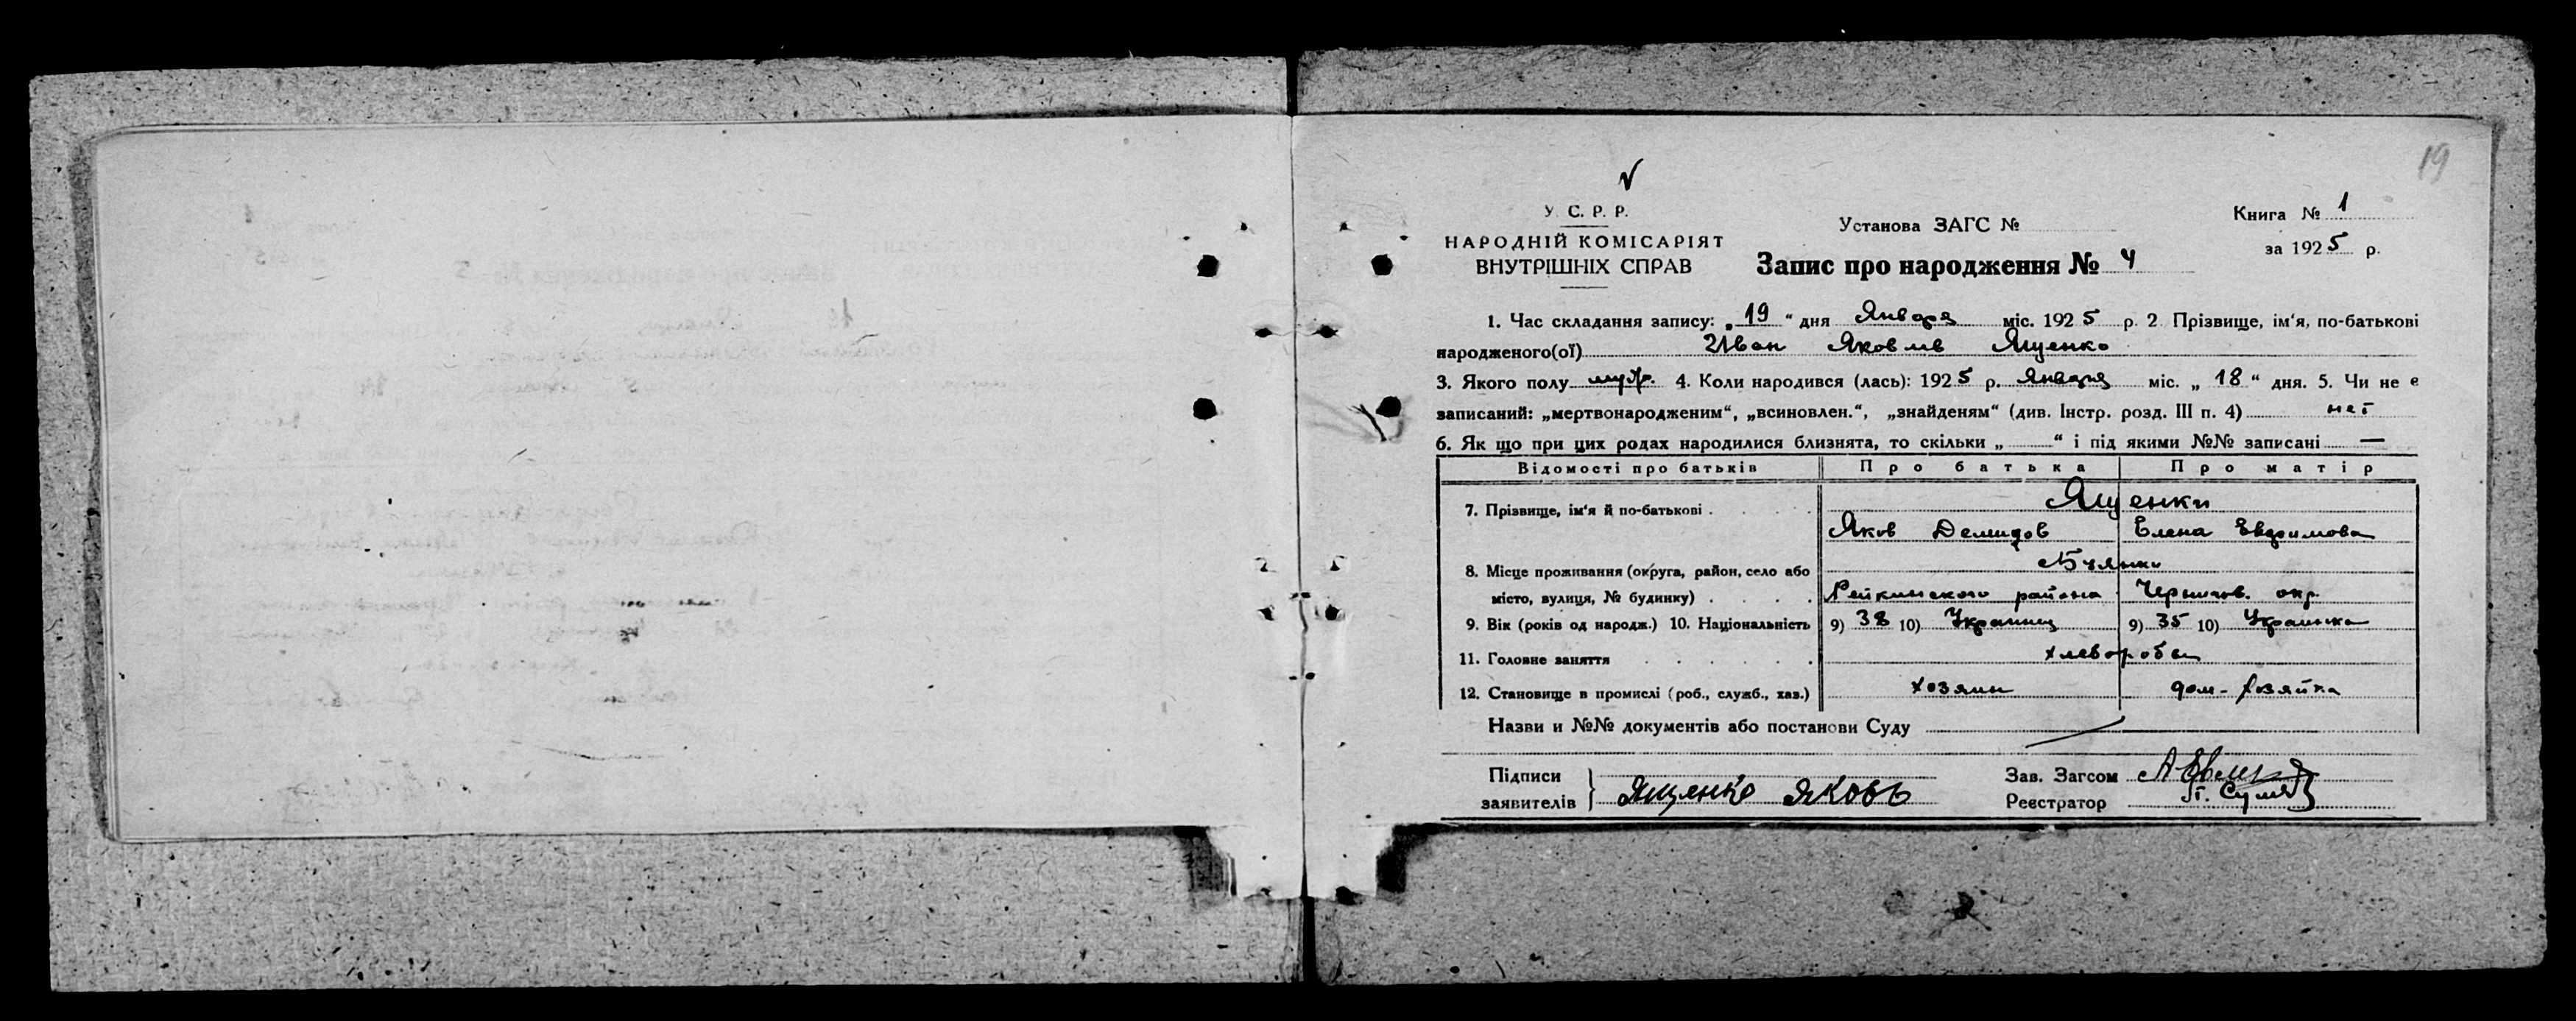 19
У. С. Р. Р.
НАРОДНІЙ КОМІСАРІЯТ
ВНУТРІШНІХ СПРАВ
Установа ЗАГС №
Запис про народження № 4
Книга № 1
за 1925 р.
1. Час складання запису: „19“ дня Января міс. 1925 р. 2 Прізвище, ім'я, по-батькові
народженого(ої) Иван Яковлев Ященко
3. Якого полу муж. 4. Коли народився (лась): 1925 р. Января міс. „18“ дня. 5. Чи не є
записаний: „мертвонародженим“, „всиновлен.“, „знайденям“ (див. Інстр. розд. III п. 4) нет
6. Як що при цих родах народилися близнята, то скільки „ “ і під якими №№ записані —
Відомості про батьків Про батька Про матір
7. Прізвище, ім'я й по-батькові Ященки
Яков Демидов Елена Евфимова
8. Місце проживання (округа, район, село або
місто, вулиця, № будинку) района Чернигов. окр.
9. Вік (років од народж.) 10. Національність 9) 38 10) Украинец 9) 35 10) Украинка
11. Головне заняття хлеборобы
12. Становище в промислі (роб., служб., хаз.) хозяин дом-хозяйка
Назви и №№ документів або постанови Суду
Підписи
заявителів Ященко Яковъ
Зав. Загсом
Реєстратор